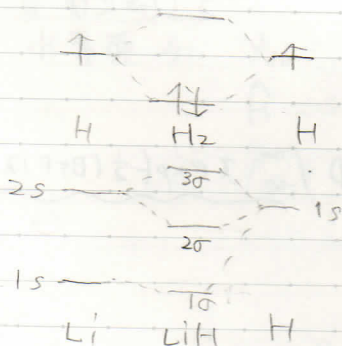 H H2 H
3σ
2s 1s
2σ
1s
1σ
Li LiH H